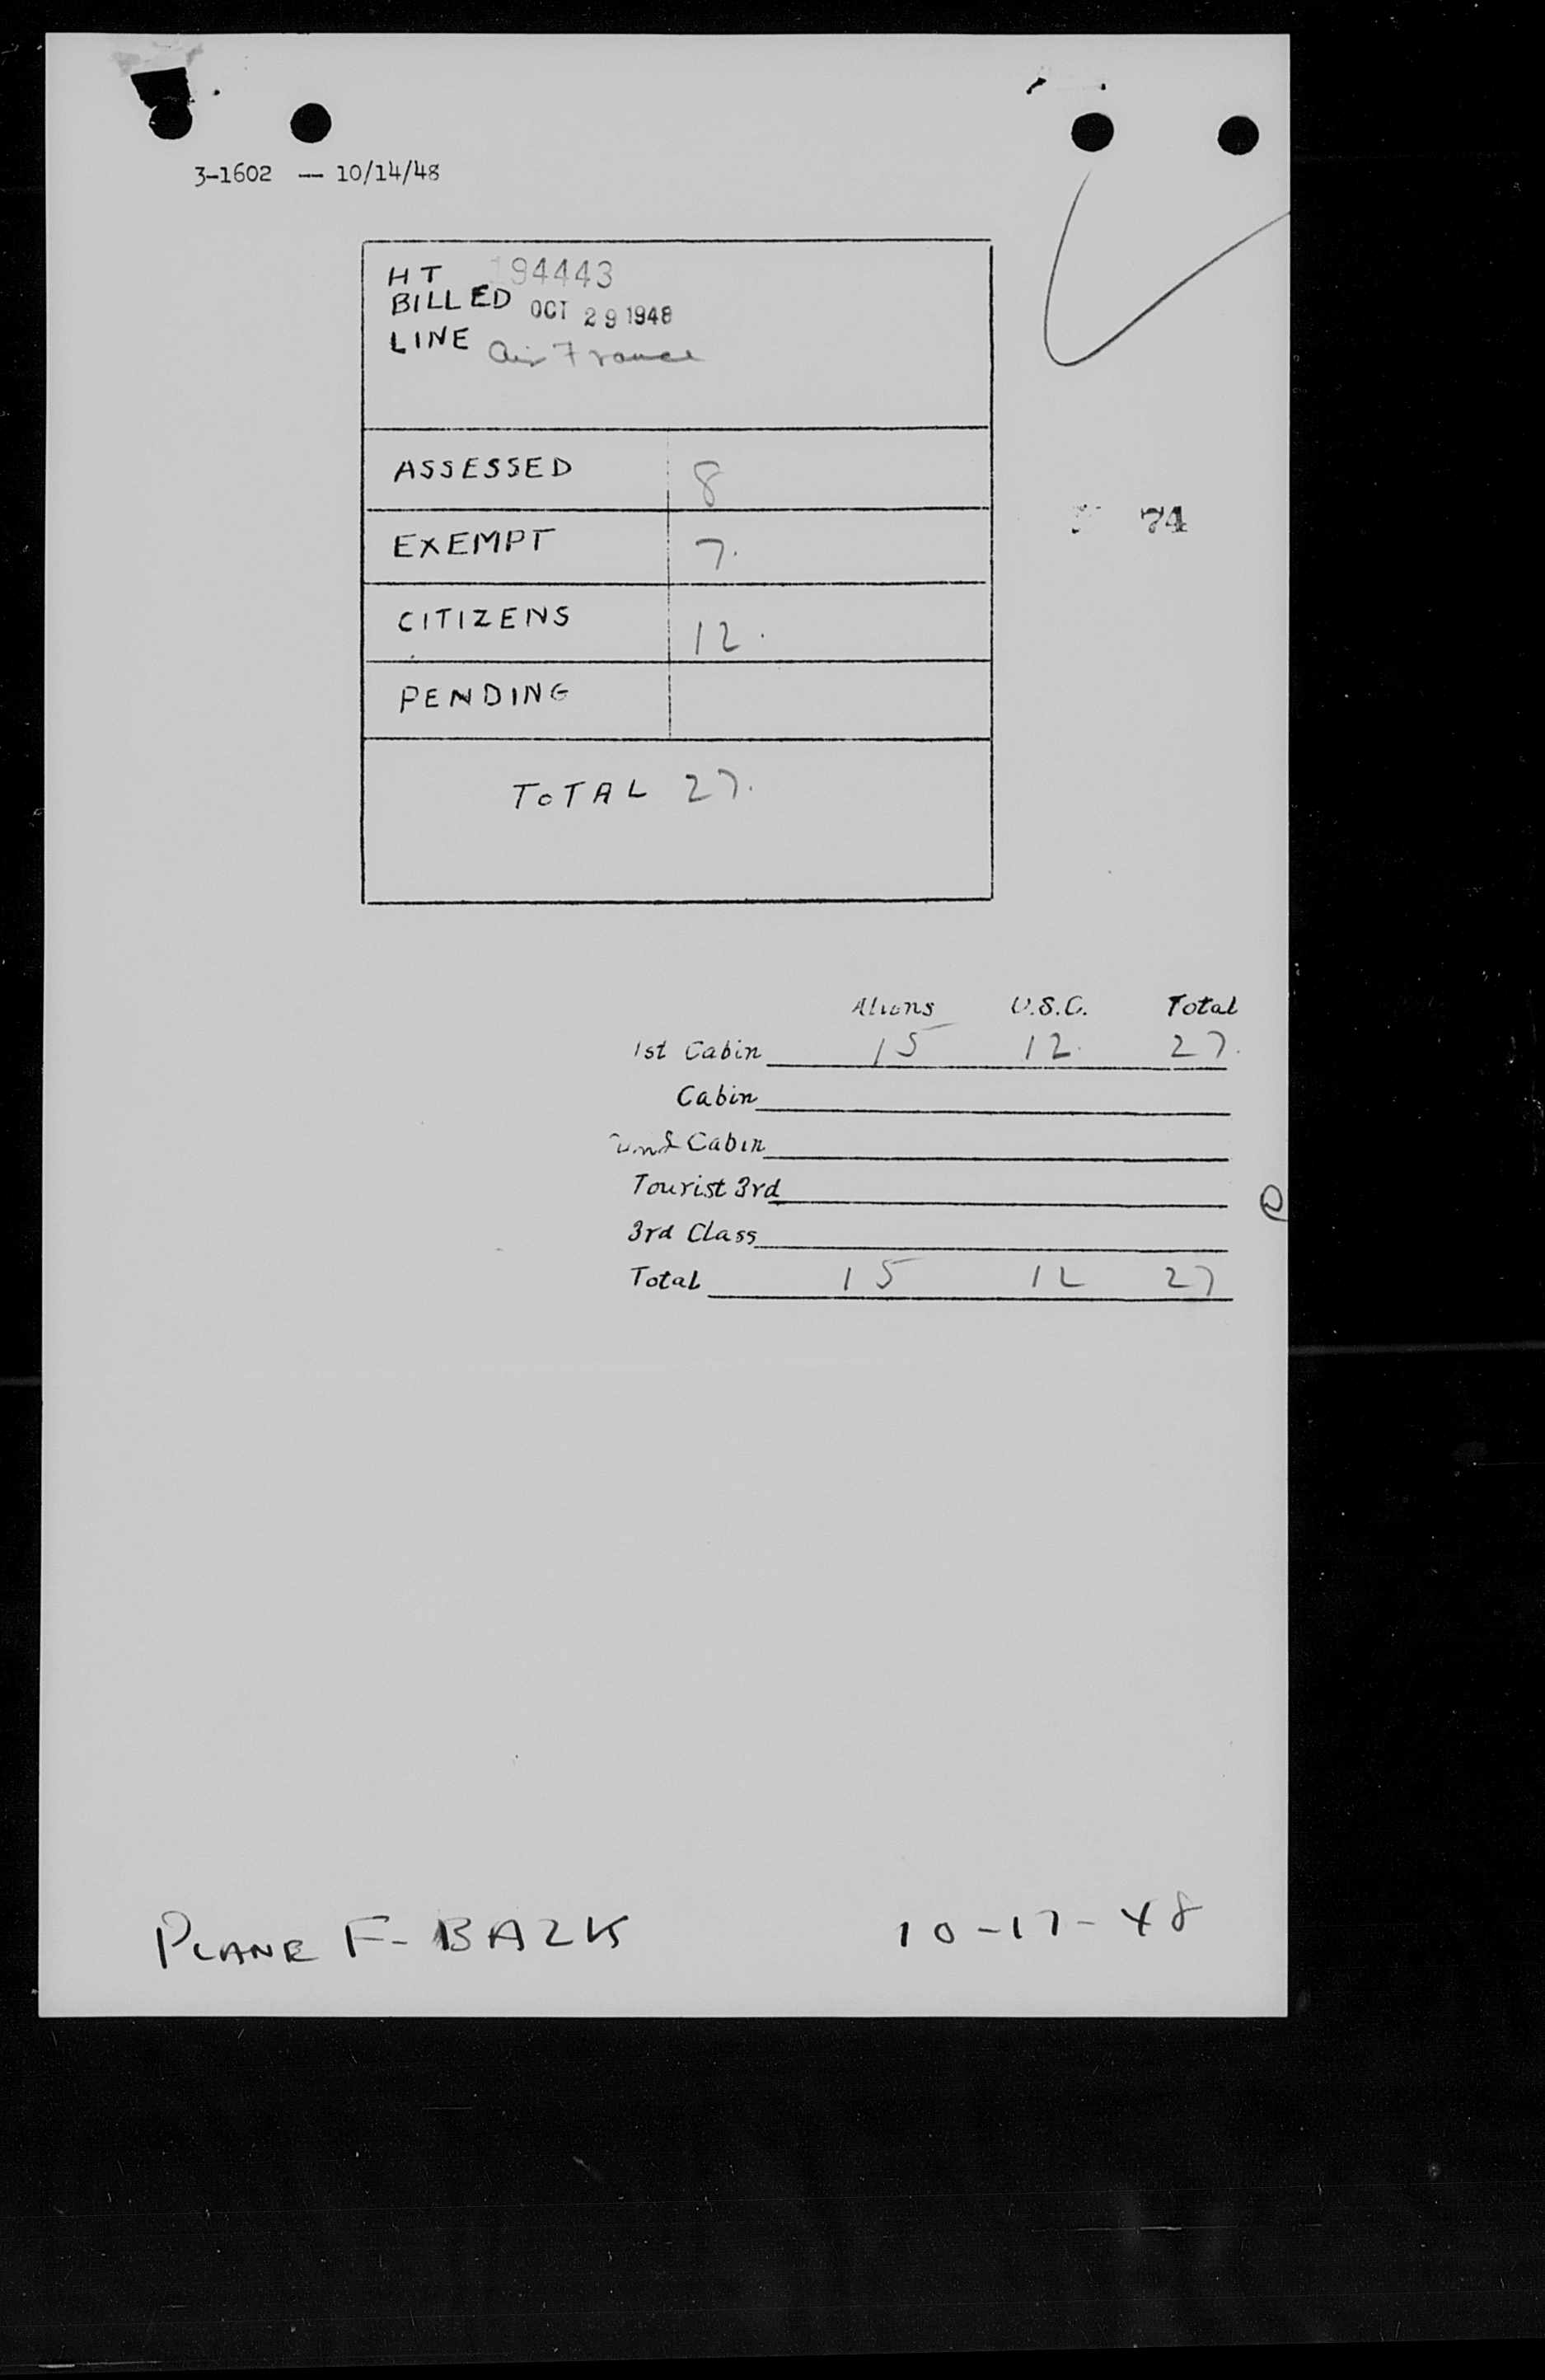 3-1602 -- 10/14/48
HT 194443
BILLED OCT 29 1948
LINE Air France
ASSESSED 8
EXEMPT 7.
74
CITIZENS 12.
PENDING
TOTAL 27.
Aliens U.S.C. Total
1st Cabin 15 12. 27.
Cabin
2nd Cabin
Tourist 3rd
3rd Class
Total 15 12 27
PLANE F-BAZK 10-17-48